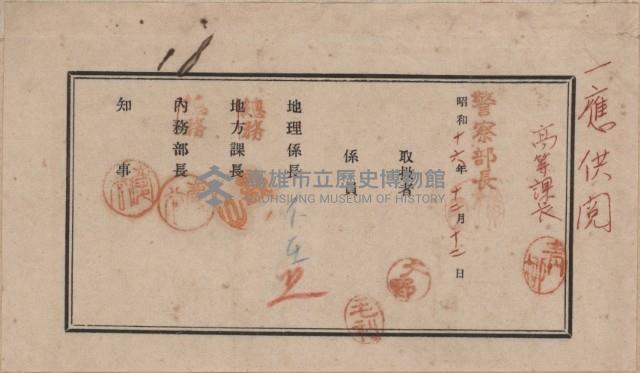 一應供閲
高等課長
警察部長
昭和十六年十二月十二日
取扱者
係員
地理係長
不在
總務
地方課長
總務
內務部長
知事
18
大野
毛利
高雄市立歷史博物館
KAOHSIUNG MUSEUM OF HISTORY